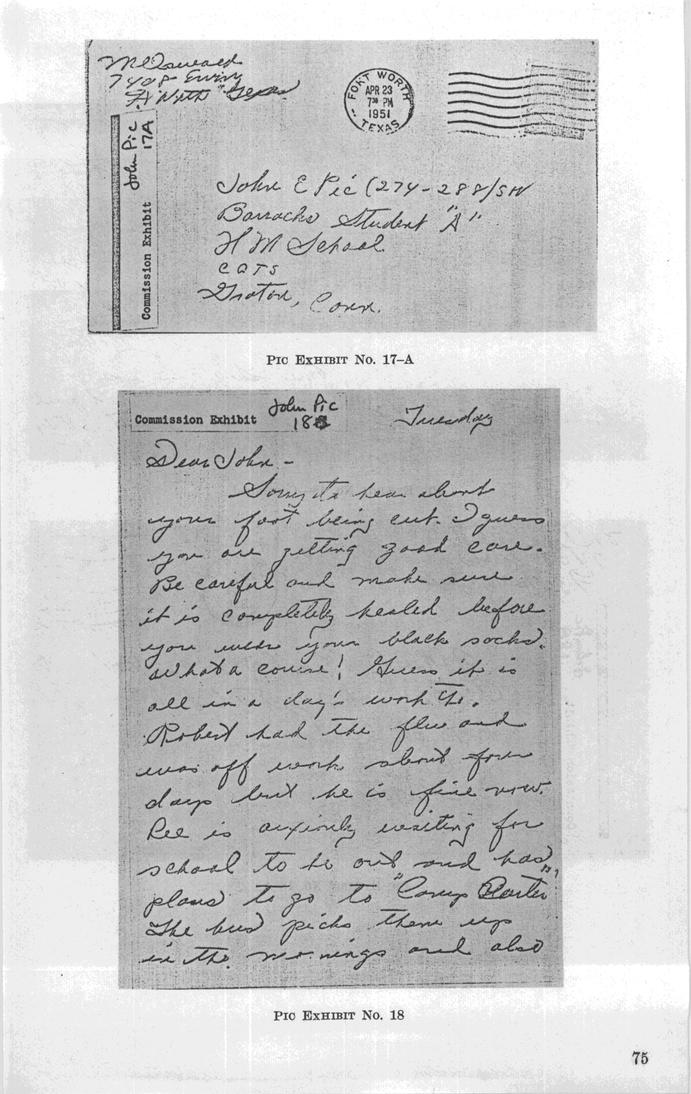 M Oswald
7408 Ewing
Ft Worth Texas
FORT WORTH
APR 23
7 30 PM
1951
TEXAS
Commission Exhibit John Pic 17A
John E Pic (274-288/SW
Barracks Student "A"
H M School
C Q T S
Groton, Conn.
PIC EXHIBIT No. 17–A
Commission Exhibit John Pic 18
Tuesday
Dear John –
Sorry to hear about
your foot being cut. I guess
you are getting good care.
Be careful and make sure
it is completely healed before
you wear your black socks.
What a course! Guess it is
all in a day's work tho.
Robert had the flu and
was off work about four
days but he is fine now.
Lee is anxiously waiting for
school to be out and has
plans to go to "Camp Carter".
The bus picks them up
in the mornings and also
PIC EXHIBIT No. 18
75